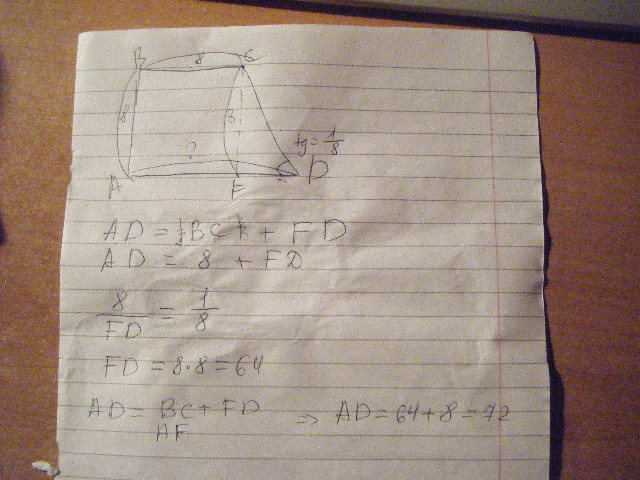 B 8 C
8 8
? tg = 1/8
A F D
AD = BC + FD
AD = 8 + FD
8/FD = 1/8
FD = 8·8 = 64
AD = BC + FD ⇒ AD = 64 + 8 = 72
AF